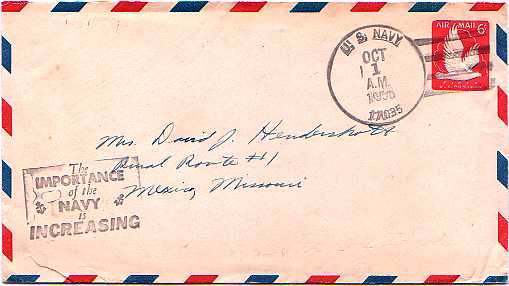 AIR MAIL 6¢
U. S. NAVY
OCT
1
A.M.
Mrs. David J. Hendershott
Rural Route #1
Mexico, Missouri
The
IMPORTANCE
of the
NAVY
is
INCREASING